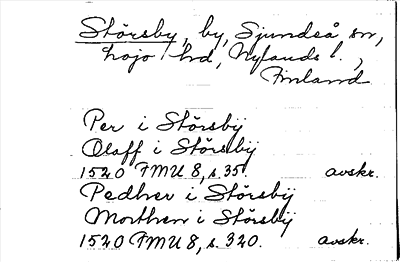 Störsby, by, Sjundeå sn,
Lojo hd, Nylands l.,
Finland
Per i Störsbÿ
Olaff i Störsbÿ
1520 FMU 8, s. 35. avskr.
Pedher i Störsbÿ
Morthen i Störsbÿ
1520 FMU 8, s. 320. avskr.